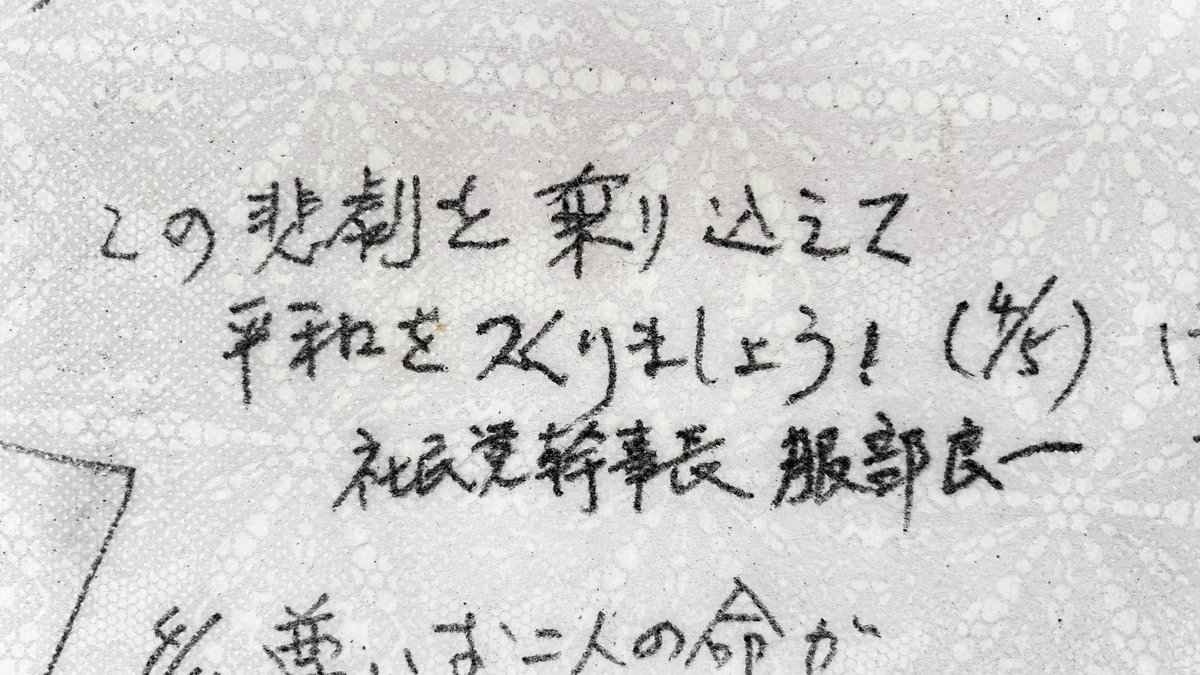 この悲劇を乗り込えて
平和をつくりましょう! (4/5)
社民党幹事長 服部良一
尊いお二人の命が